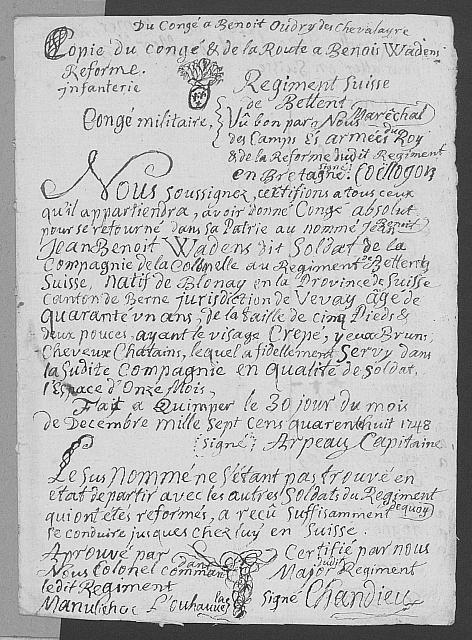 Du Congé a Benoit Oudry des Chevalayre
Copie du congé & de la Route a Benois Wadens
Reforme.
infanterie
Regiment Suisse
de Bettent
Congé militaire,
Vû bon par Nous Maréchal
des Camps Es armées du Roy
& de la Reforme dudit Regiment
en Bretagne. signé Coetlogon
Nous soussignez, certifions a tous ceux
qu'il appartiendra, avoir donné Congé absolut
pour se retourné dans sa Patrie au nommé Jean Benoit
Jean Benoit Wadens dit Soldat de la
Compagnie de la Colonelle au Regiment de Bettent
Suisse, natif de Blonay en la Province de Suisse
Canton de Berne jurisdiction de Vevay age de
quarante un ans, de la taille de cinq Pieds &
deux pouces, ayant le visage Crepe, yeux Bruns,
Cheveux Chatains, lequel a fidellement Servy dans
la sudite Compagnie en qualité de soldat,
l'Espace d'Onze Mois,
Fait a Quimper le 30 jour du mois
de Decembre mille Sept Cens quarent huit 1748
signé Arpeau Capitaine
Le sus Nommé ne s'étant pas trouvé en
etat de partir avec les autres Soldats du Regiment
qui ont étés reformés, a recû suffisamment dequoy
se conduire jusques chez luy en Suisse.
Aprouvé par
Nous Colonel commandant
ledit Regiment
Certifié par nous
Major dudit Regiment
signé Chandieu